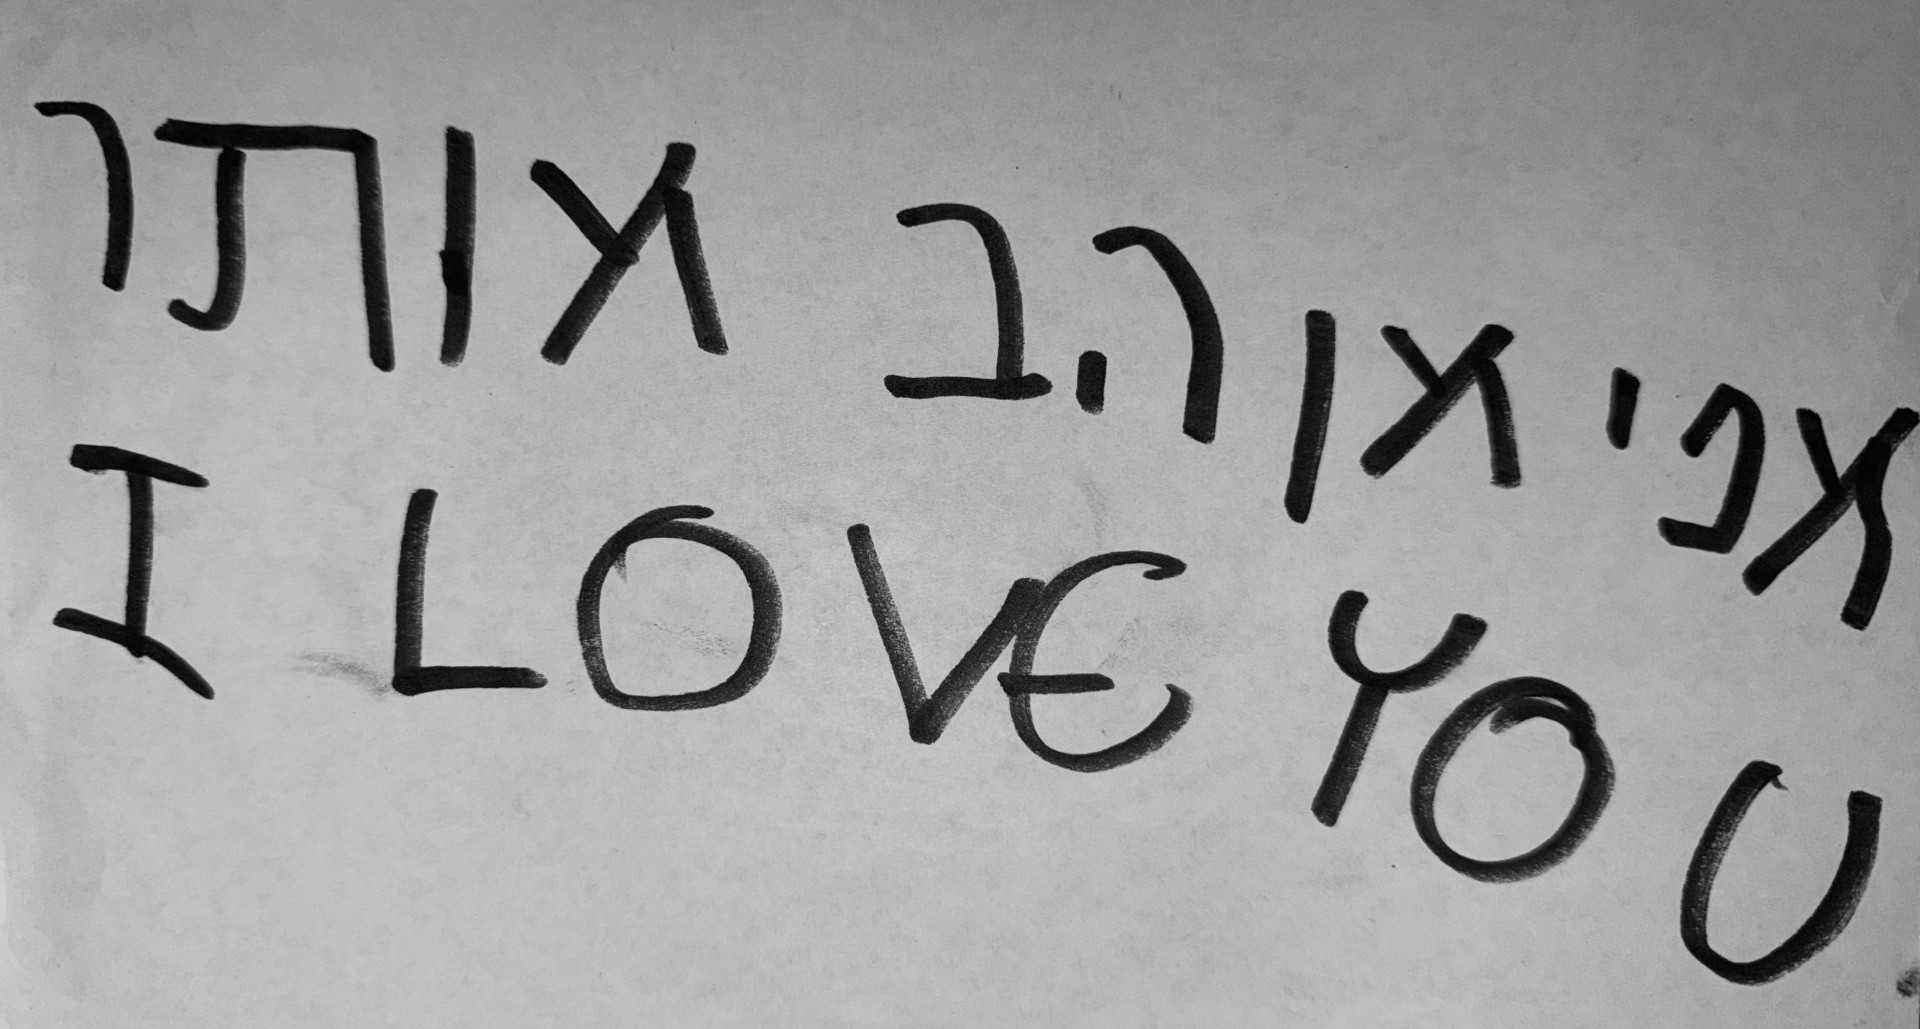 אני אוהב אותך
I LOVE YOU